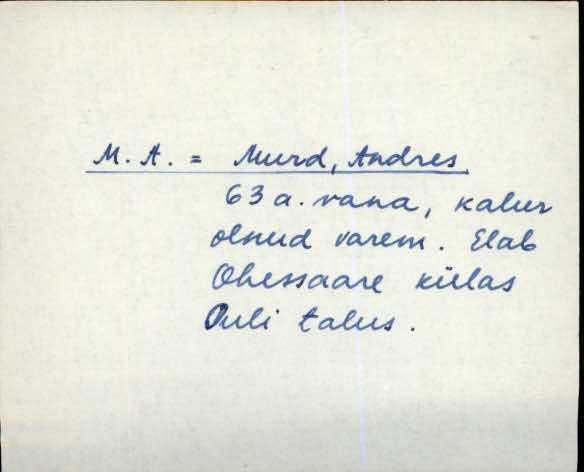 M. A. = Murd, Andres
63 a. vana, kalur
olnud varem. Elab
Ohessaare külas
Ouli talus.